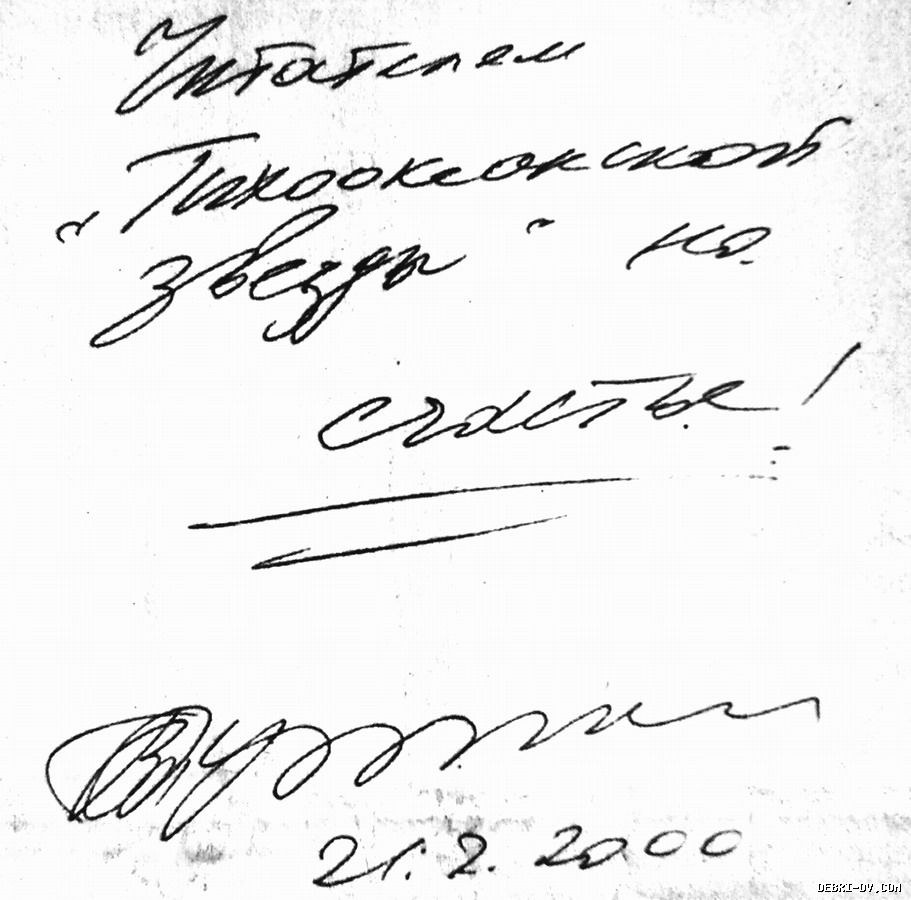 Читателям
"Тихоокеанской
звезды" на
счастье!
21.2.2000
DEBRI-DV.COM